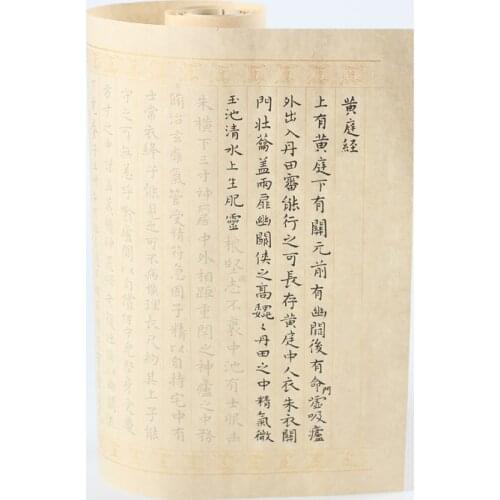 黄庭経
上有黄庭下有關元前有幽闕後有命門噓吸廬
外出入丹田審能行之可長存黄庭中人衣朱衣關
門壯籥蓋兩扉幽闕俠之高巍〻丹田之中精氣微
玉池清水上生肥靈根堅志不衰中池有士服赤
朱橫下三寸神所居中外相距重閉之神廬之中務
脩治玄癰氣管受精符急固子精以自持宅中有
士常衣絳子能見之可不病橫理長尺約其上子能
守之可無恙呼噏廬間以自償保守完堅身受慶
方寸之中謹蓋藏